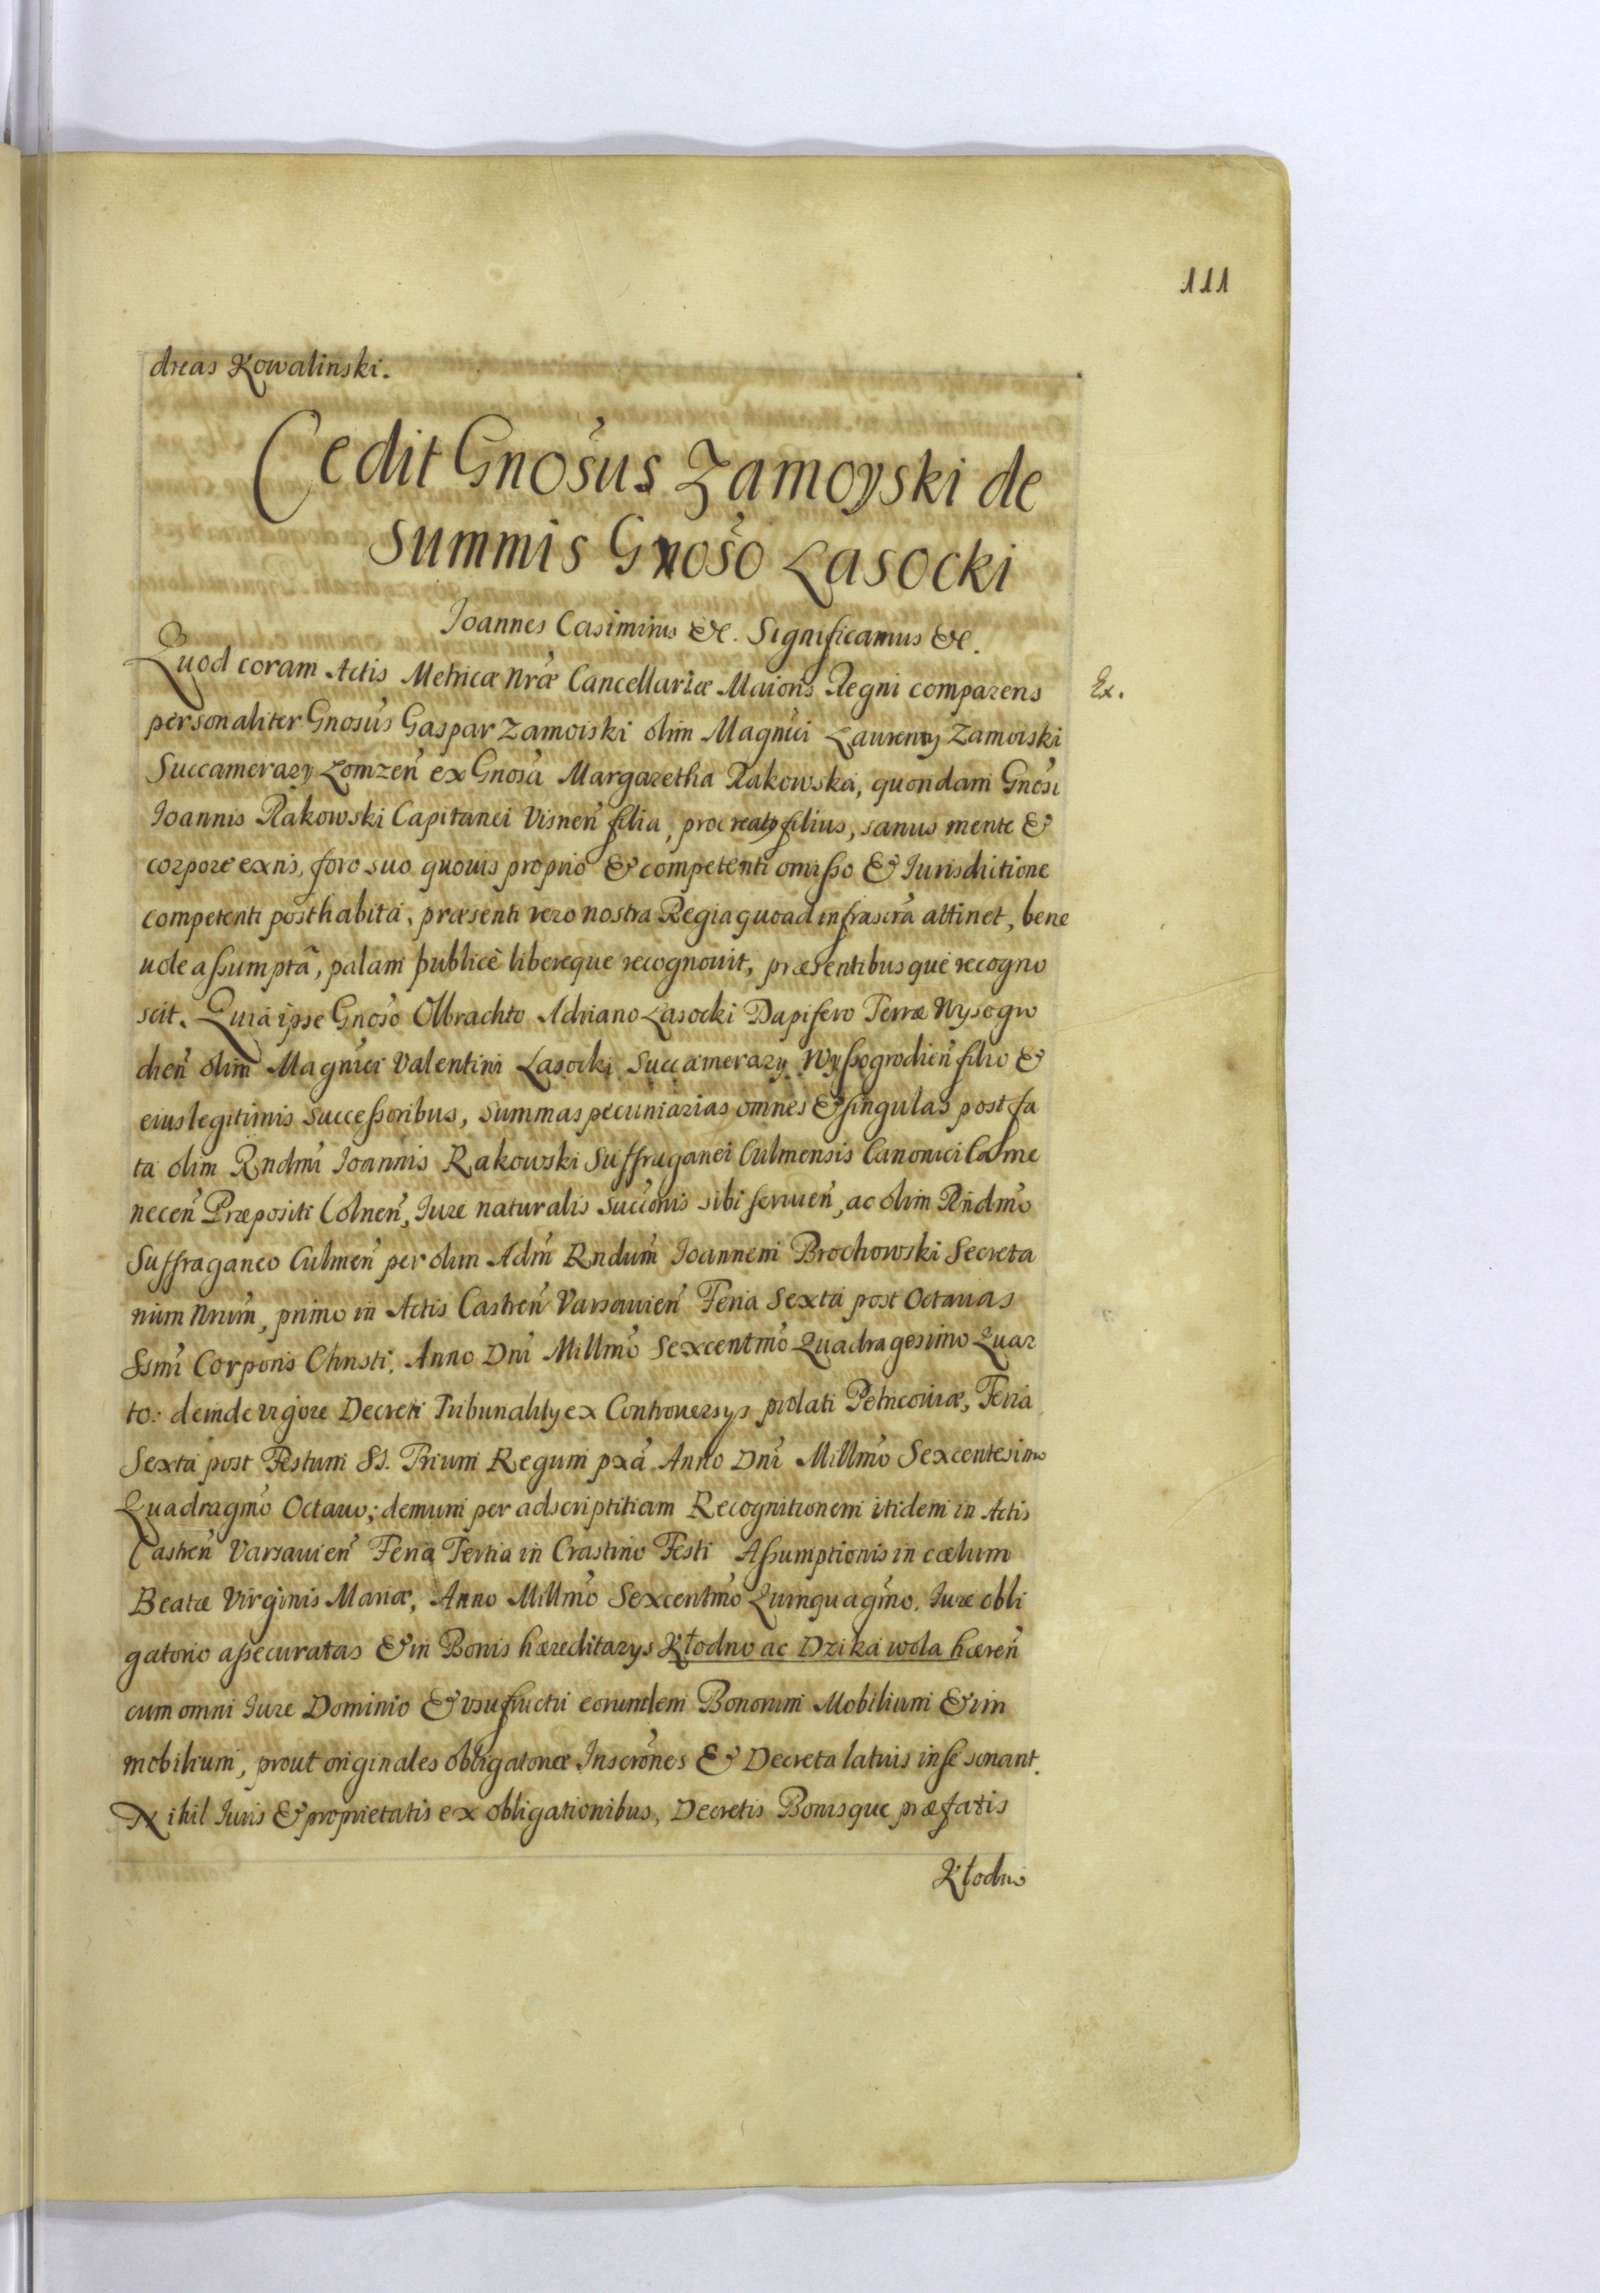 111
dreas Kowalinski.
Cedit Gnosus Zamoyski de
summis Gnoso Lasocki
Ioannes Casimirus &c. Significamus &c.
Quod coram Actis Metricæ Nræ Cancellariæ Maioris Regni comparens
Ex.
personaliter Gnosus Gaspar Zamoiski olim Magnici Laurenty Zamoiski
Succamerary Lomzen ex Gnosa Margaretha Rakowska, quondam Gnosi
Ioannis Rakowski Capitanei Visnen filia, procreaty filius, sanus mente &
corpore exns, foro suo quouis proprio & competenti omisso & Iurisdictione
competenti posthabita, præsenti vero nostra Regia quoad infrascra attinet, bene
uole assumpta, palam publice libereque recognouit, præsentibusque recogno
scit. Quia ipse Gnoso Olbrachto Adriano Lasocki Dapifero Terræ Wysogro
dien olim Magnici Valentini Lasocki Succamerary Wyssogrodien filio &
eius legitimis successoribus, summas pecuniarias omnes & singulas post fa
ta olim Rndmi Ioannis Rakowski Suffraganei Culmensis Canonici Came
necen Præpositi Colnen, Iure naturalis succonis sibi seruien, ac olim Rndmo
Suffraganeo Culmen per olim Adm Rndum Ioannem Brochowski Secreta
rium Nrum, primo in Actis Castren Varsauien Feria Sexta post Octauas
Ssmi Corporis Christi, Anno Dni Millmo Sexcentmo Quadragesimo Quar
to: deinde vigore Decreti Tribunality ex Controuersys prolati Petricouiæ, Feria
Sexta post Festum SS. Trium Regum pxa Anno Dni Millmo Sexcentesimo
Quadragmo Octauo; demum per adscriptitiam Recognitionem itidem in Actis
Castren Varsauien Feria Tertia in Crastino Festi Assumptionis in cœlum
Beatæ Virginis Mariæ, Anno Millmo Sexcentmo Quinquagmo, Iure obli
gatorio assecuratas & in Bonis hæreditarys Kłodno ac Dzika wola hæren
cum omni Iure Dominio & vsufructu eorumdem Bonorum Mobilium & im
mobilium, prout originales obligatoriæ Inscrones & Decreta latius in se sonant.
Nihil Iuris & proprietatis ex obligationibus, Decretis Bonisque præfatis
Kłodno